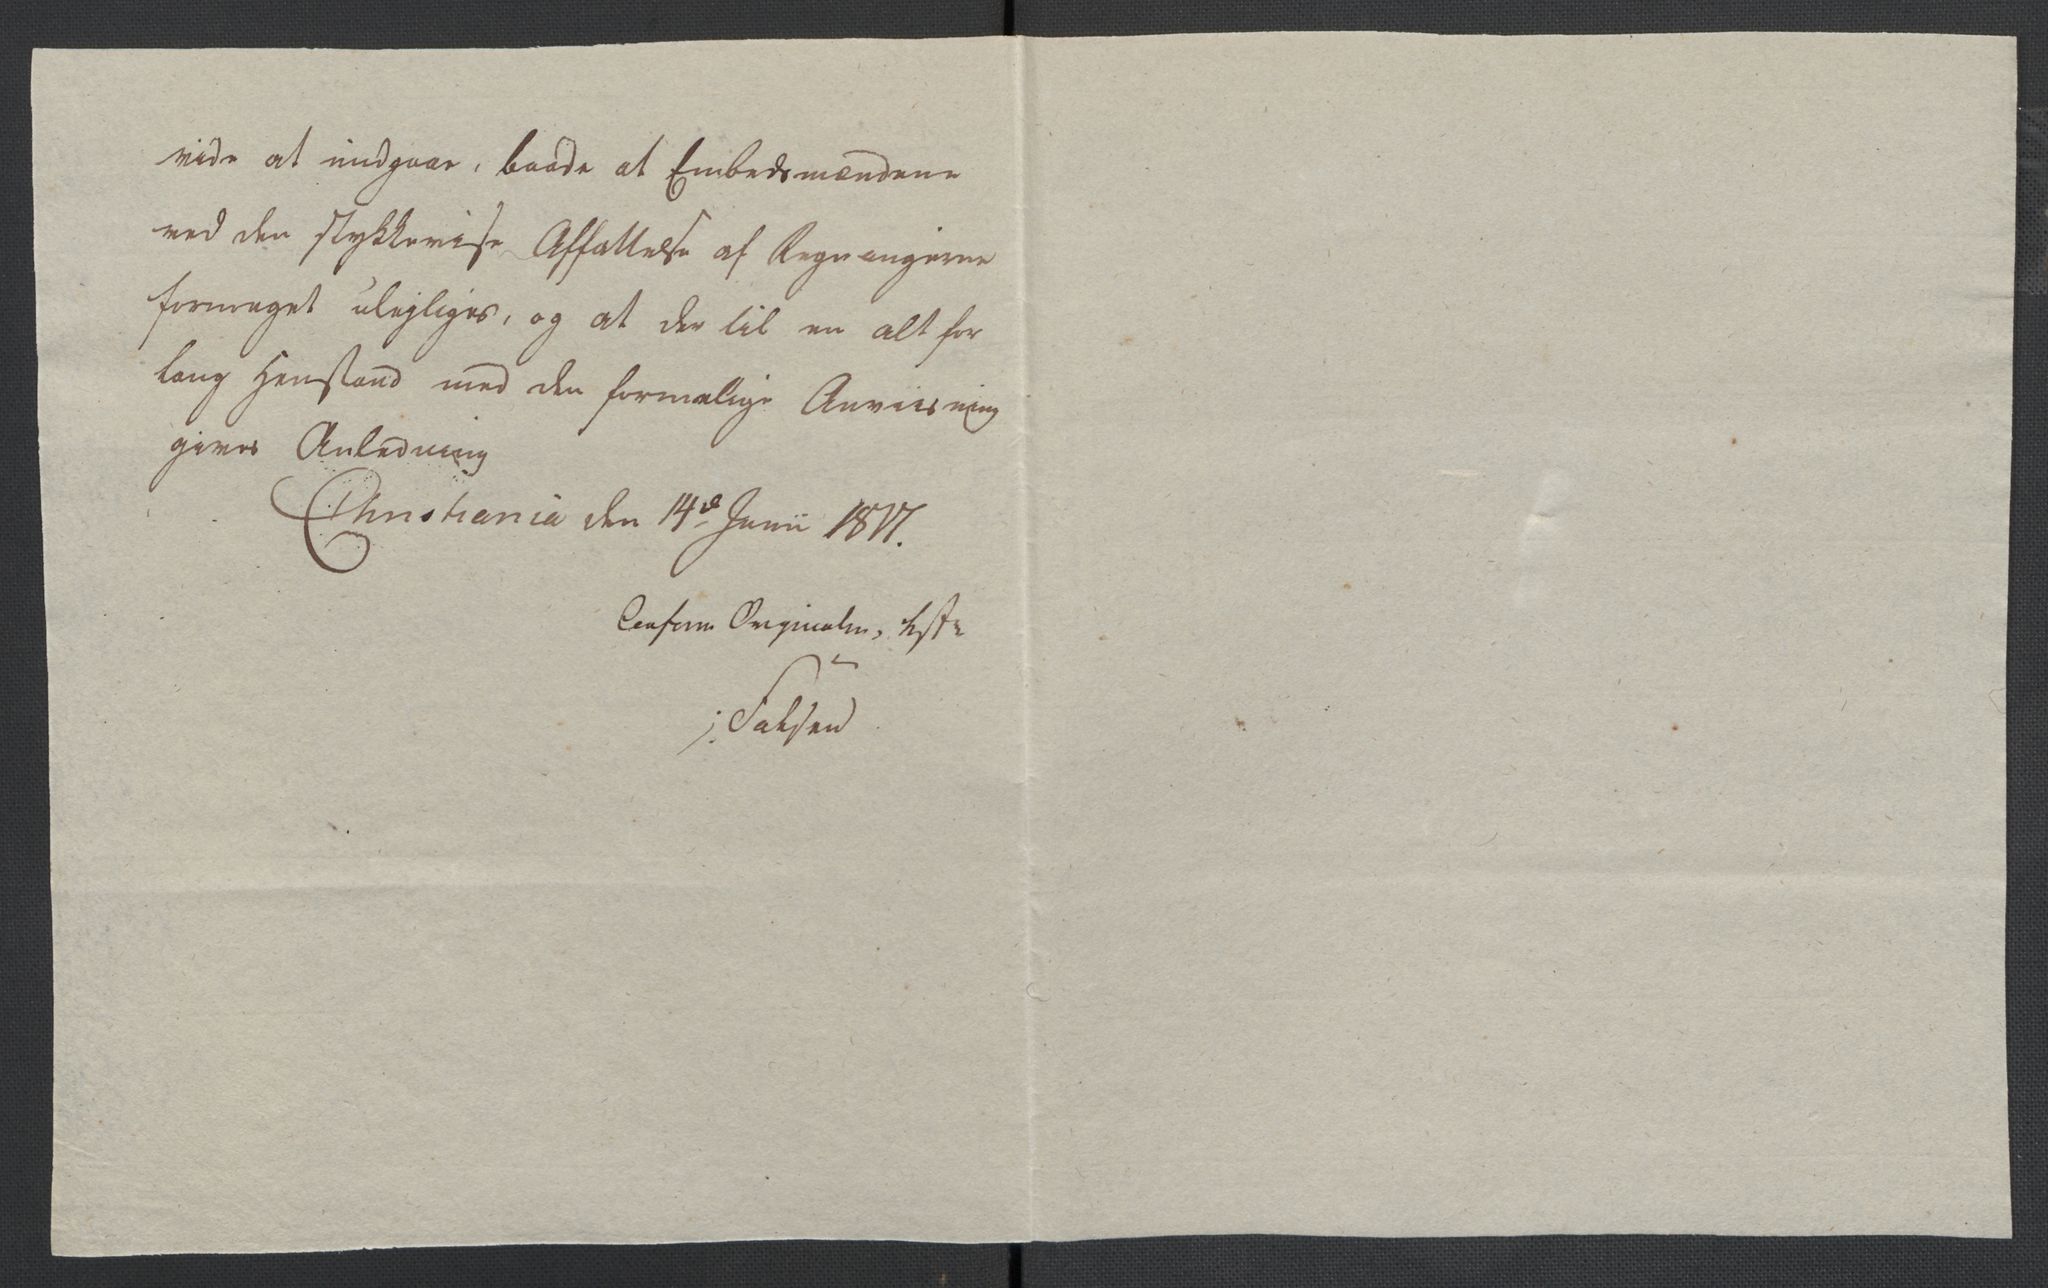 vide at undgaae, baade at Embedsmændene
ved den stykkevise Affattelse af Regningerne
formeget uleiliges, og at der til en alt for
lang Henstand med den formelige Anviisning
gives Anledning
Christiania den 14d Junii 1817.
Conform Originalen, teste
Falsen